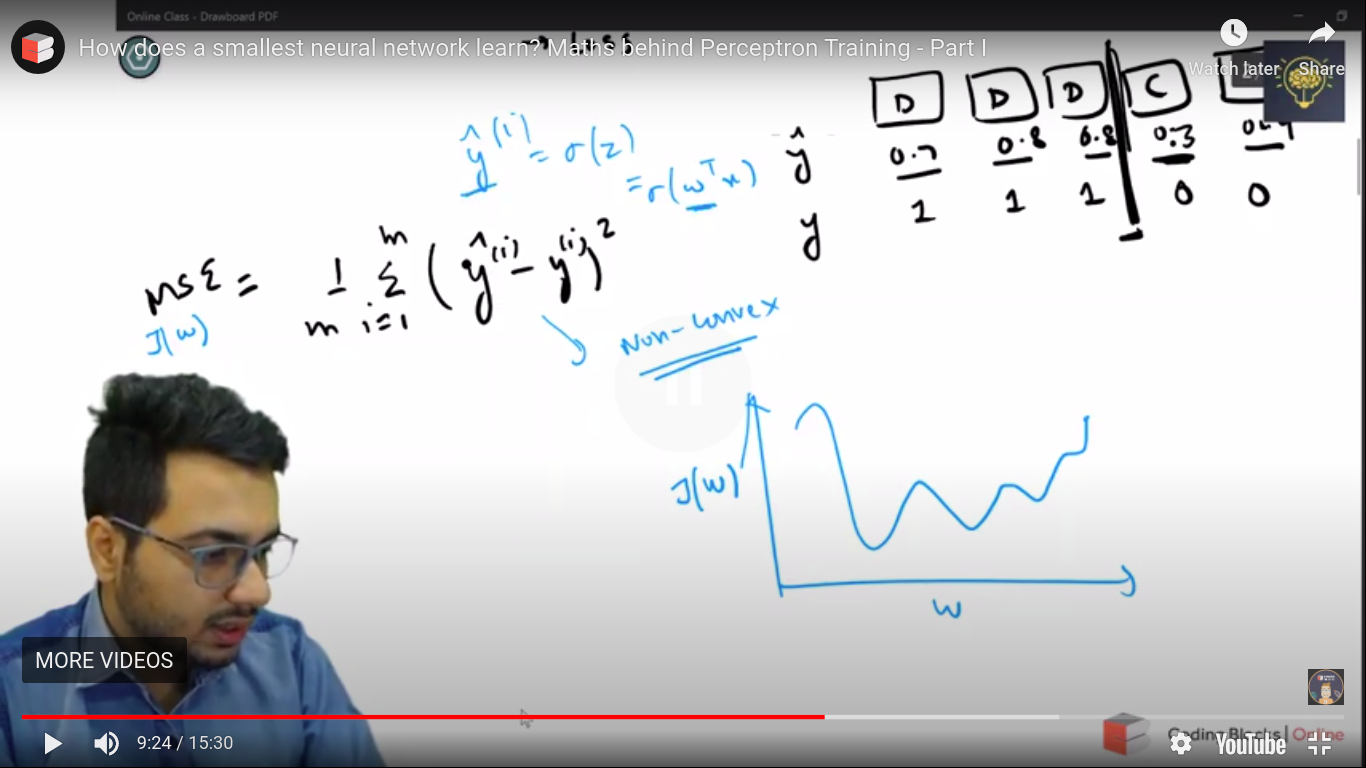 Online Class - Drawboard PDF
How does a smallest neural network learn? Maths behind Perceptron Training - Part I
Watch later Share
D D D C
ŷ 0.7 0.8 0.8 0.3
y 1 1 1 0 0
ŷ⁽ⁱ⁾ = σ(z)
= σ(wᵀx)
MSE = 1/m Σᵢ₌₁ᵐ (ŷ⁽ⁱ⁾ - y⁽ⁱ⁾)²
J(w)
Non-convex
J(w)
w
MORE VIDEOS
9:24 / 15:30
Coding Blocks | Online
YouTube